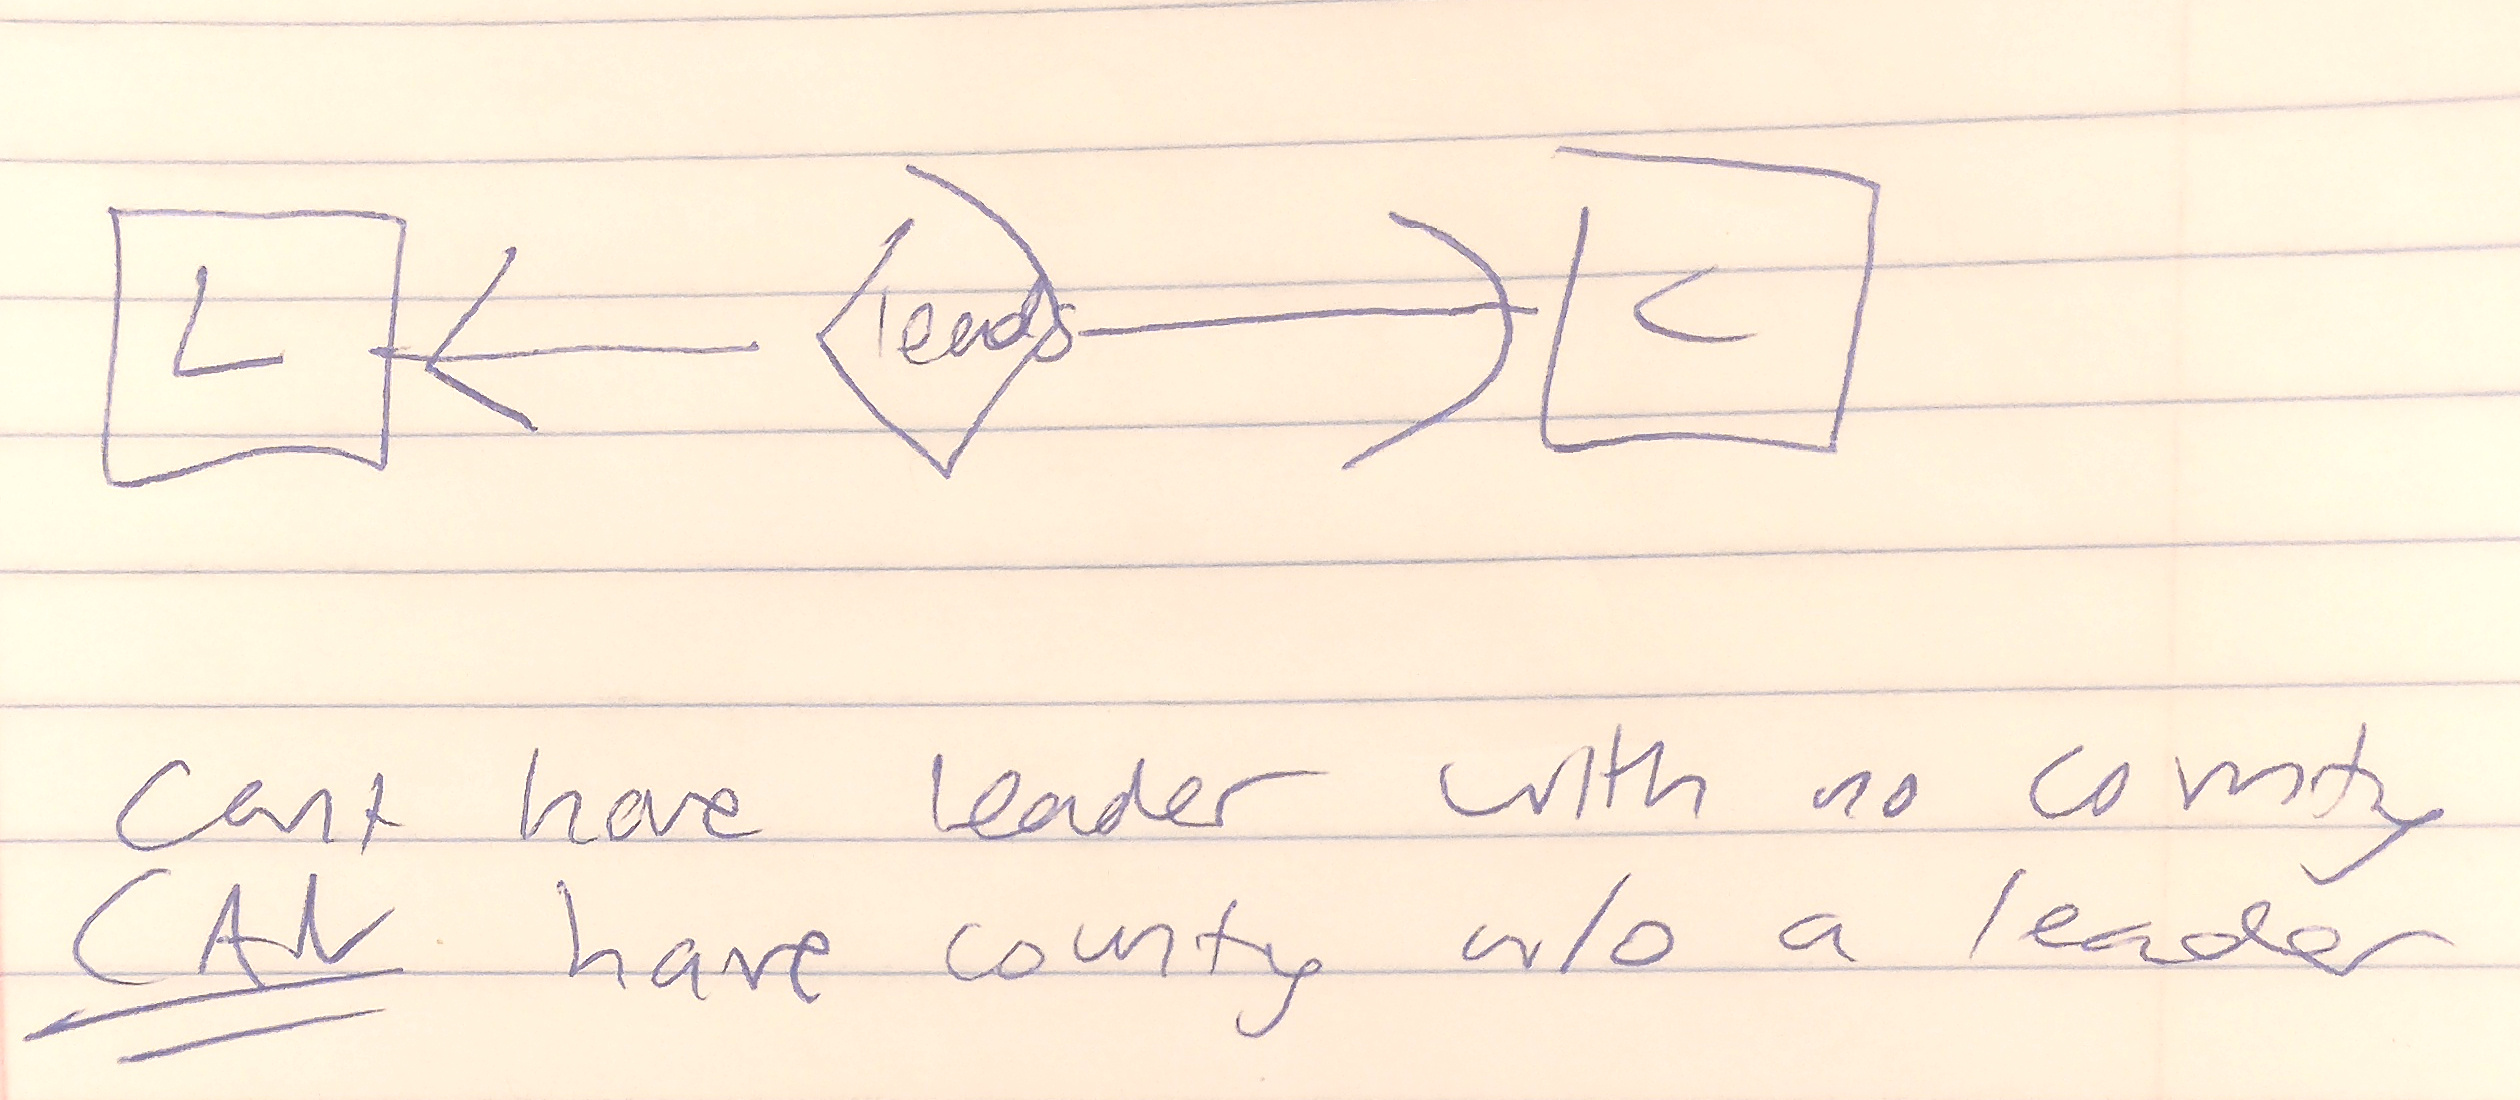 L leads C
Cant have leader with no county
CAN have county w/o a leader